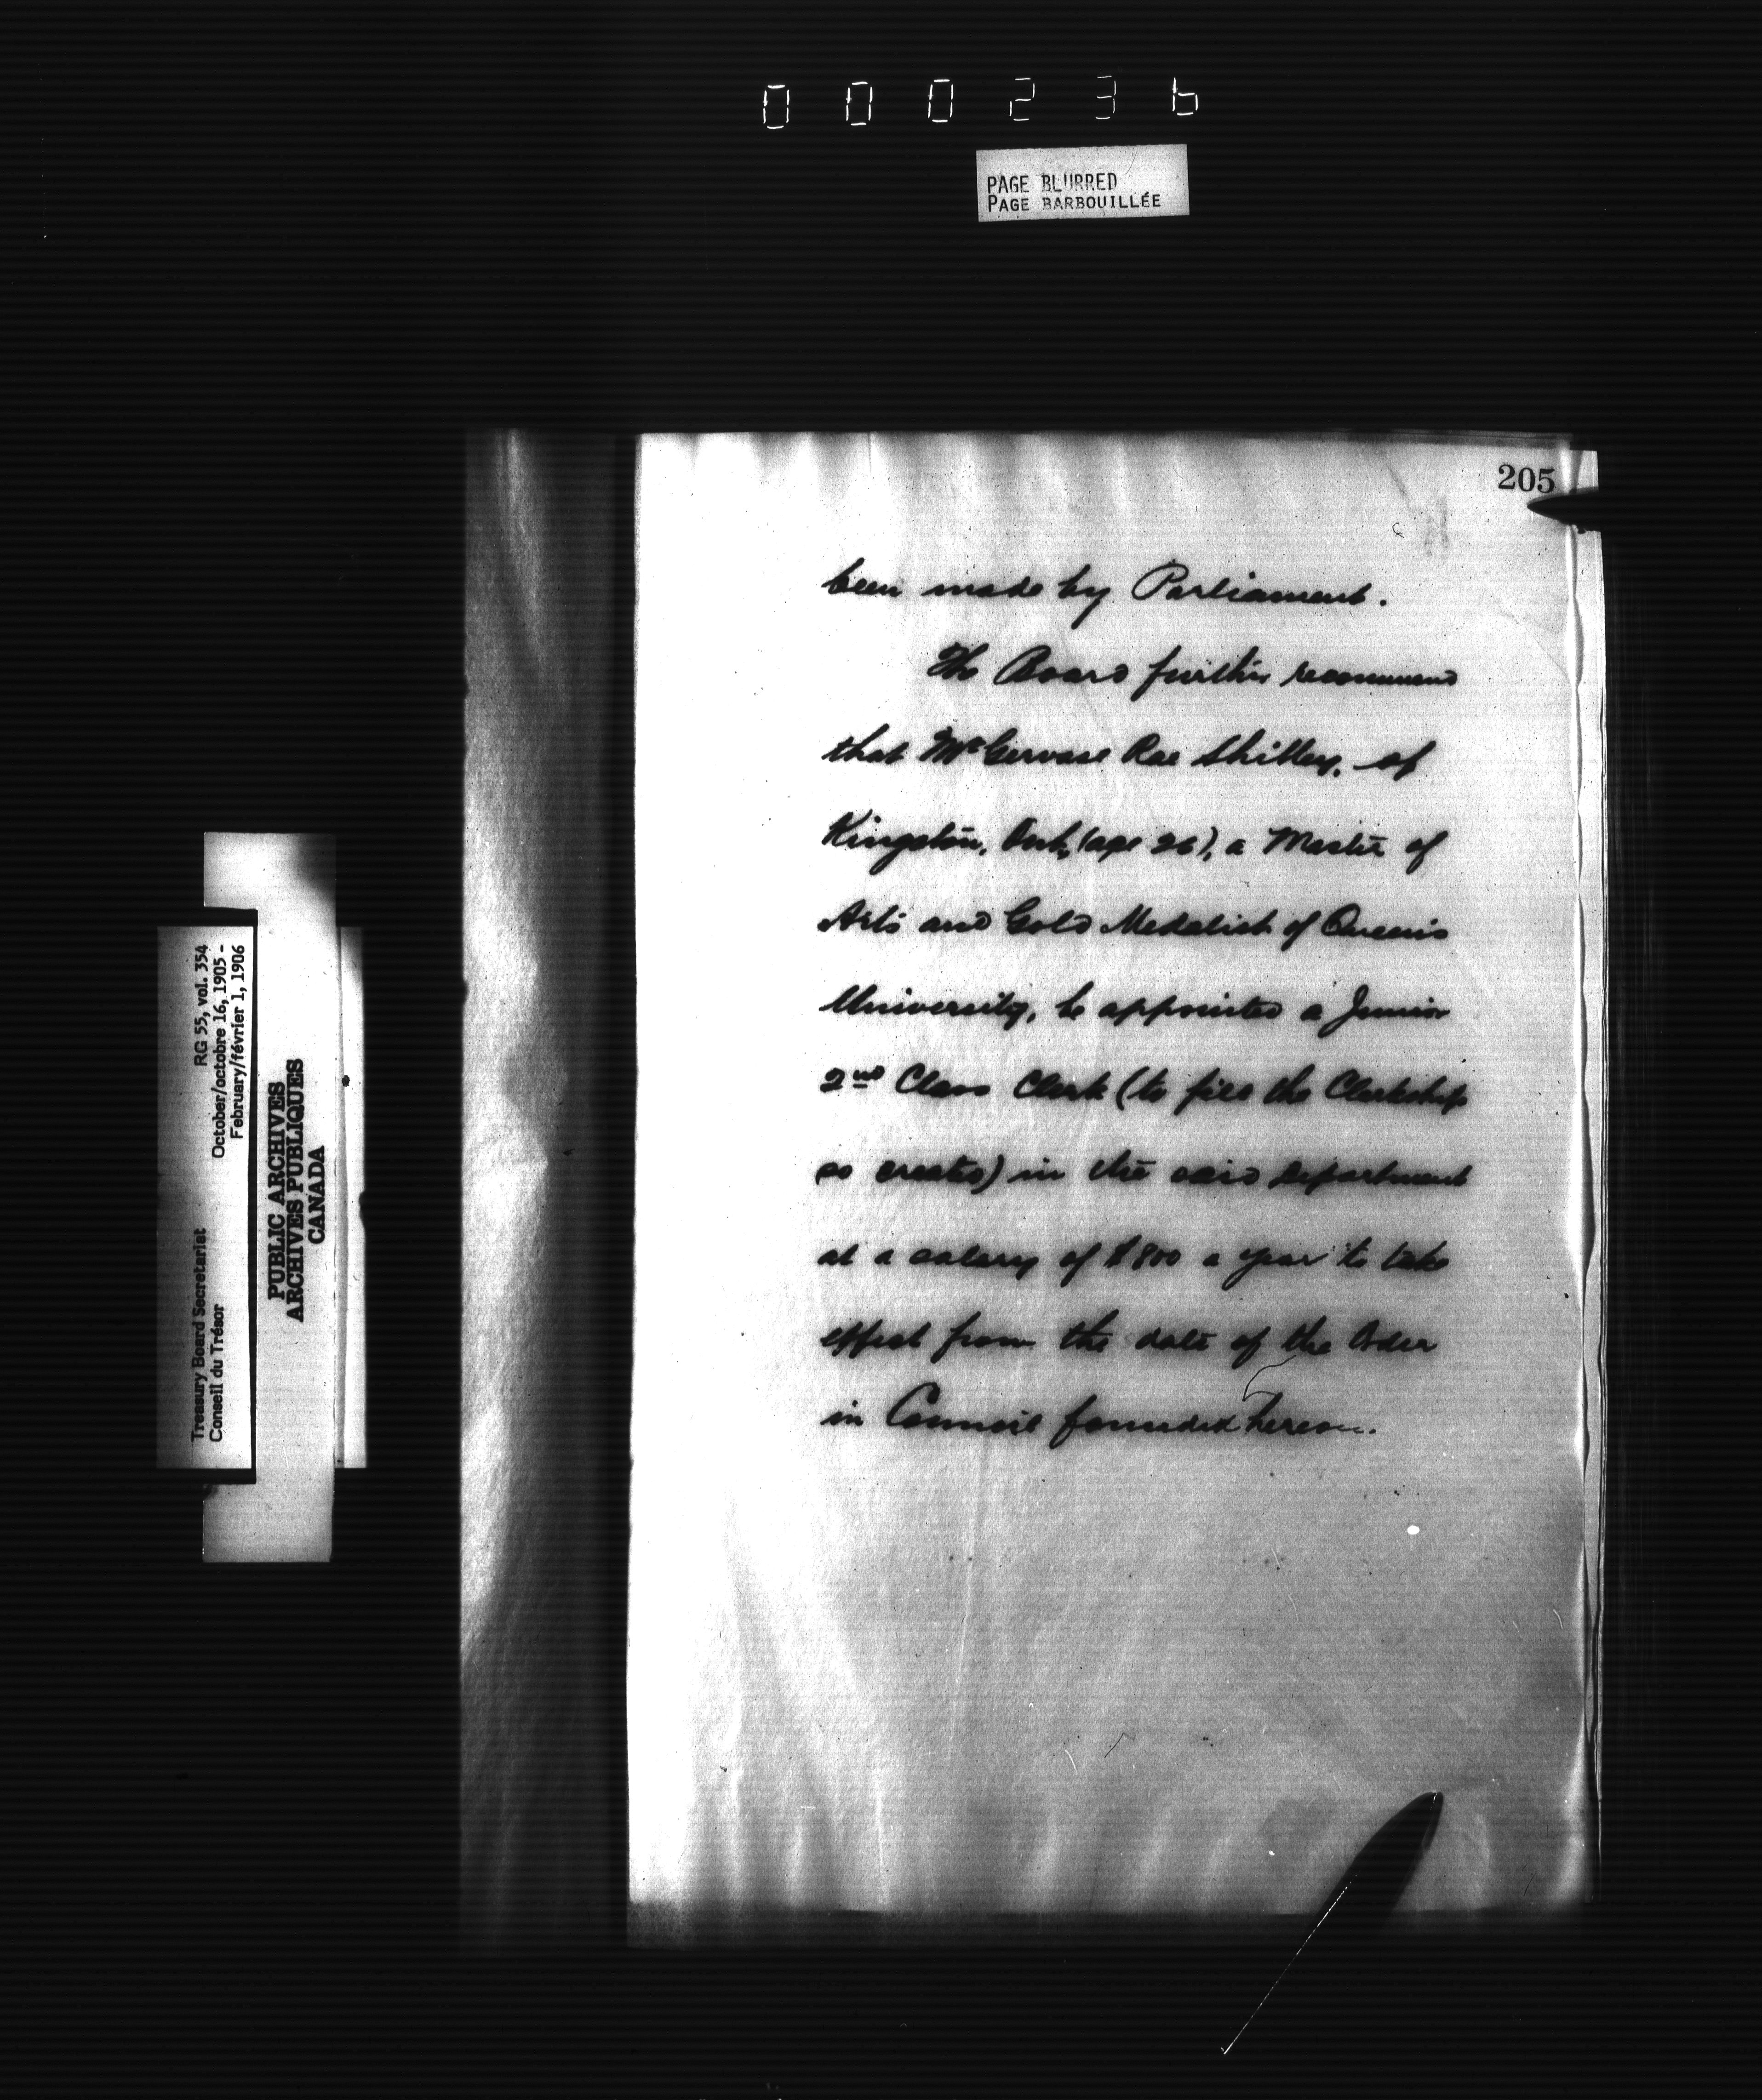 000236
PAGE BLURRED
PAGE BARBOUILLÉE
205
been made by Parliament.
The Board further recommend
that Mr Gervase Rae Shibley, of
Kingston, Ont, (age 26), a Master of
Arts and Gold Medalist of Queen's
University, be appointed a Junior
2nd Class Clerk (to fill the Clerkship
so created) in the said Department
at a salary of $800 a year to take
effect from the date of the Order
in Council founded hereon.
Treasury Board Secretariat RG 55, vol. 354
Conseil du Trésor October/octobre 16, 1905 -
February/février 1, 1906
PUBLIC ARCHIVES
ARCHIVES PUBLIQUES
CANADA